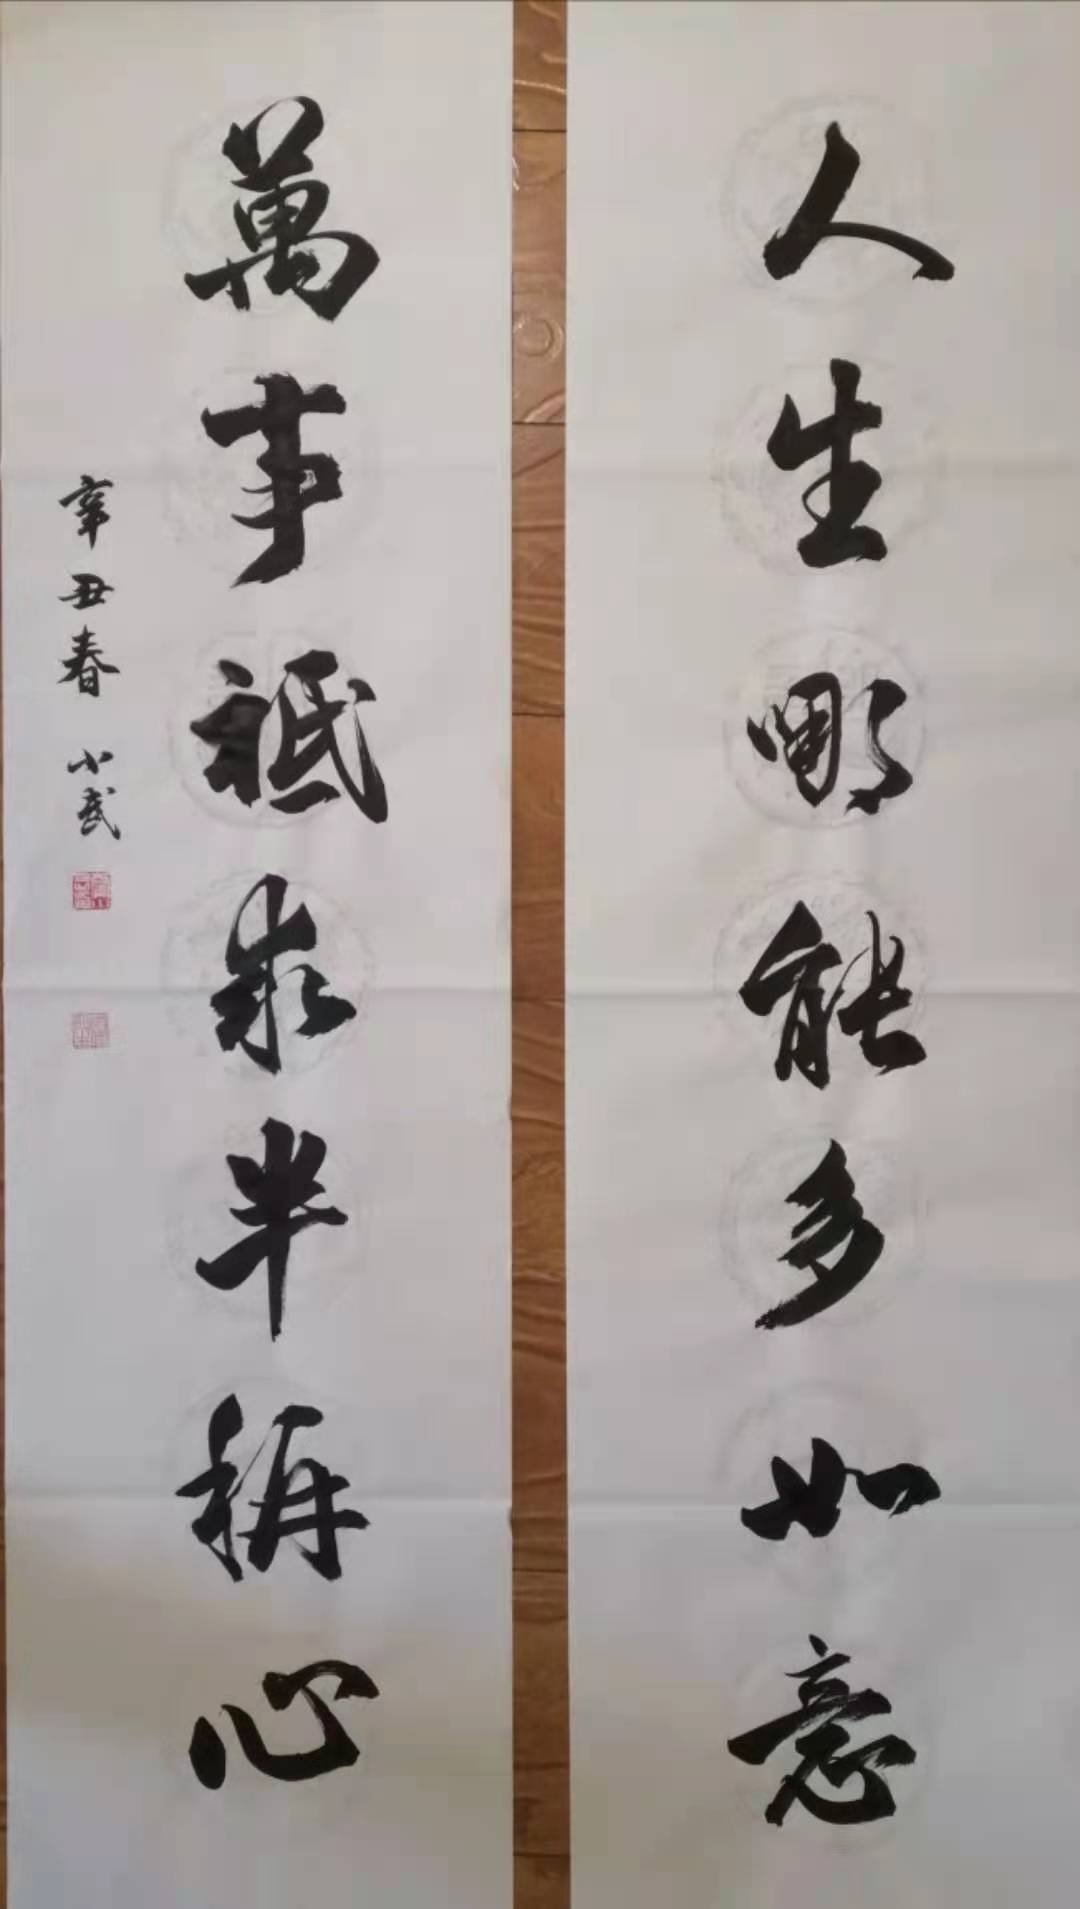 人生哪能多如意
萬事祗求半稱心
辛丑春 小武